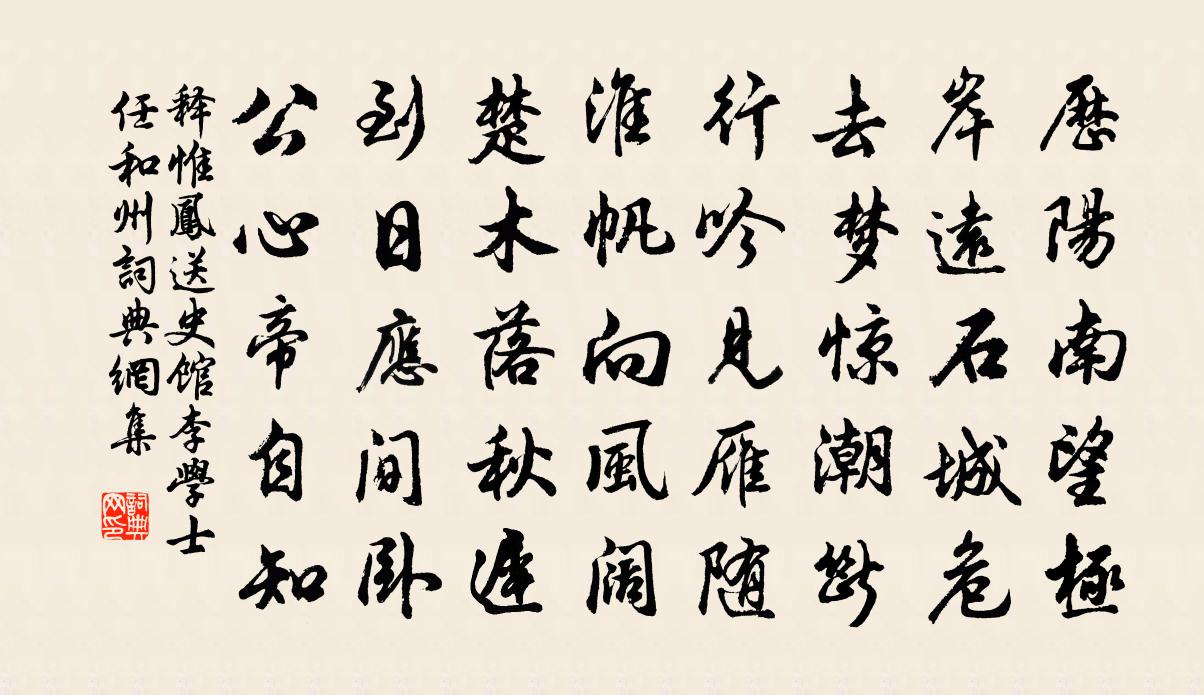 歷陽南望極
岸遠石城危
去梦惊潮断
行吟見雁随
淮帆向風阔
楚木落秋遲
到日應間卧
公心帝自知
释惟鳳送史馆李學士
任和州詞典網集
詞典
网印